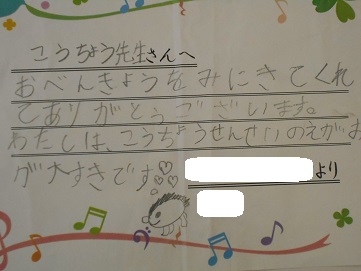 こうちょう先生さんへ
おべんきょうをみにきてくれ
てありがとうございます。
わたしは、こうちょうせんせいのえがお
が大すきです♡♡♡
より